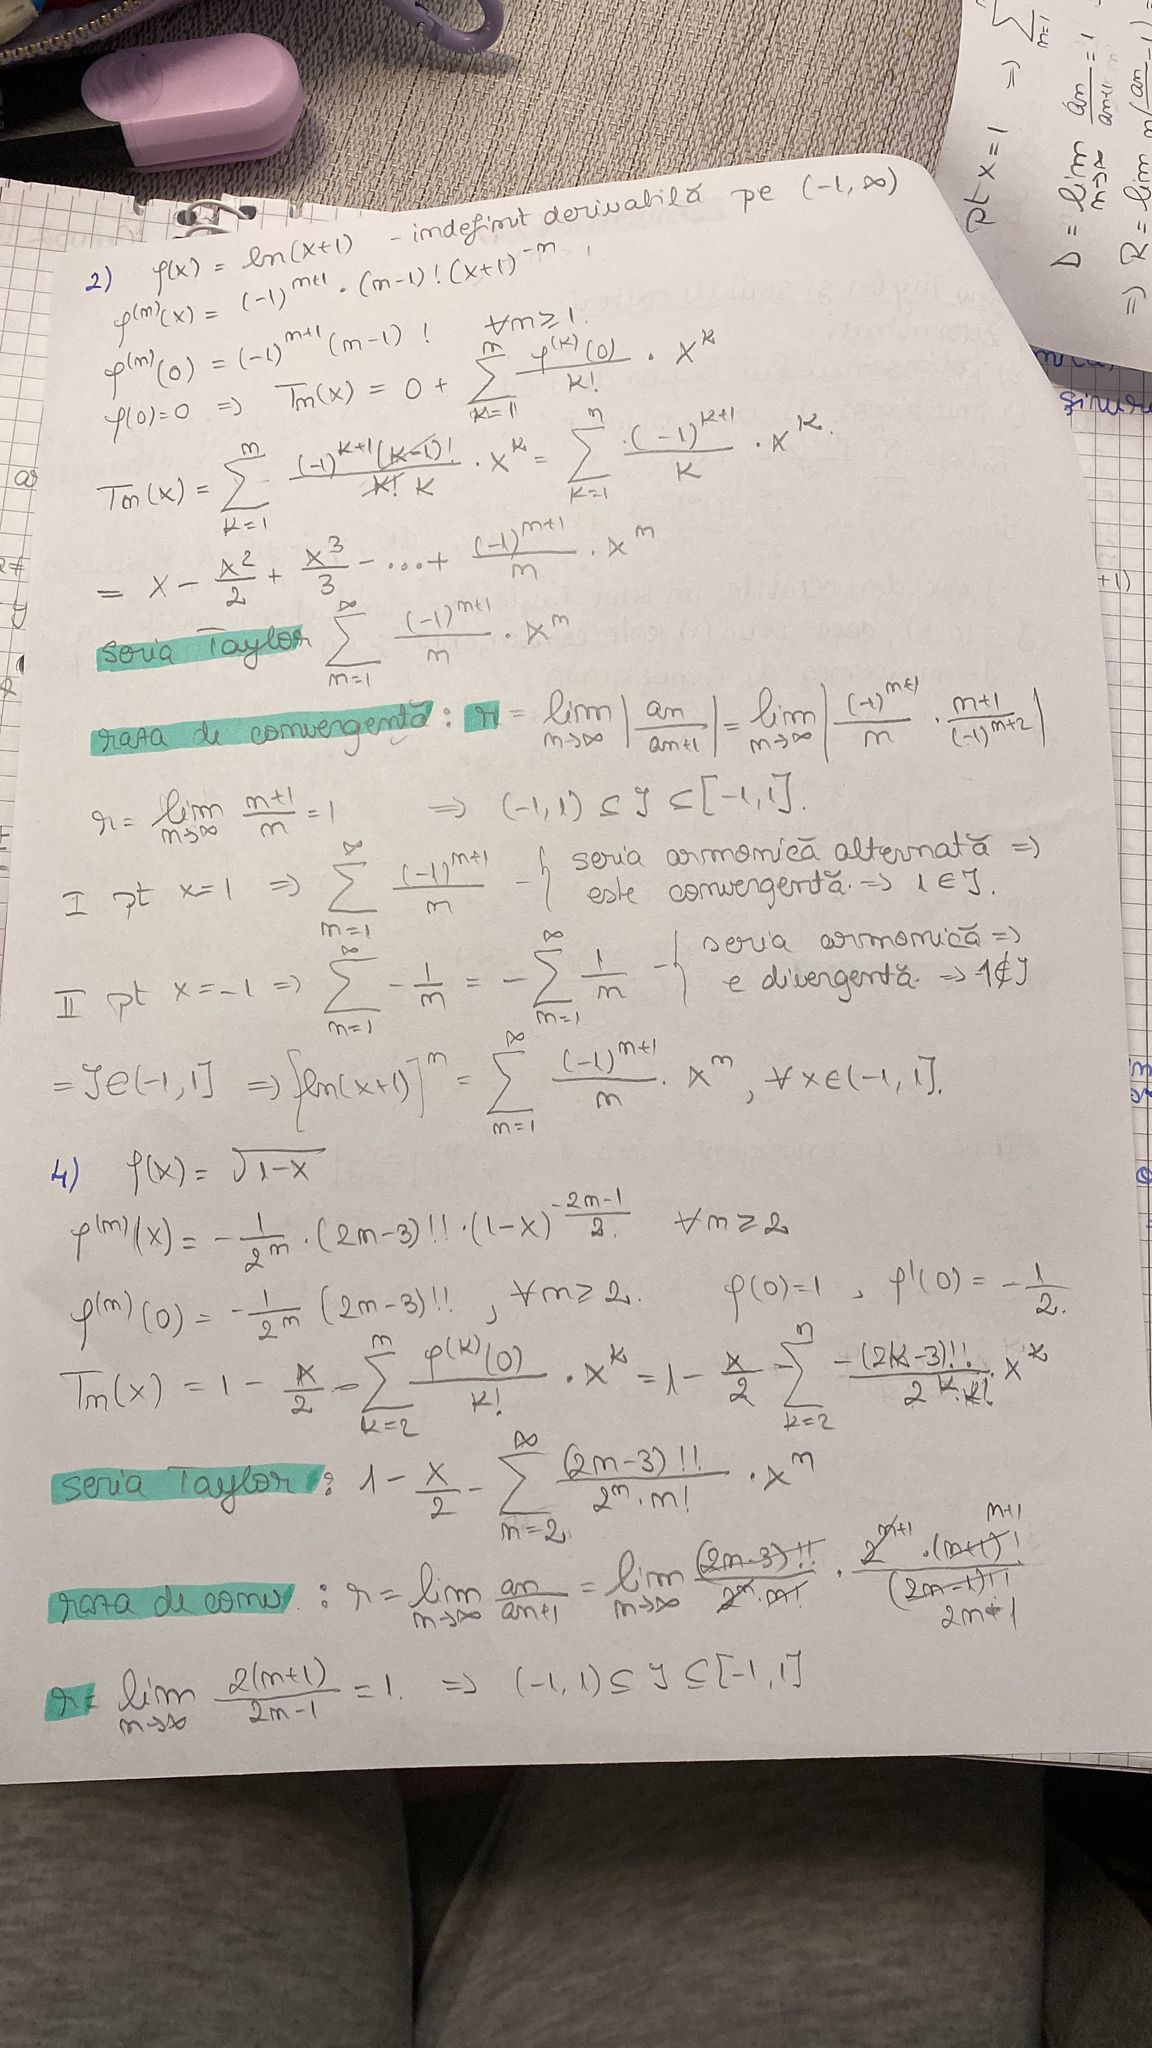 2) f(x) = ln(x+1) - indefinit derivabilă pe (-1, ∞)
f^(n)(x) = (-1)^(n+1) · (n-1)! (x+1)^(-n),
∀n ≥ 1.
f^(n)(0) = (-1)^(n+1) (n-1)!
f(0)=0 => Tn(x) = 0 + ∑_{k=1}^{n} f^(k)(0)/k! · x^k
Tn(x) = ∑_{k=1}^{n} (-1)^(k+1)(k-1)!/(k! k) · x^k = ∑_{k=1}^{n} (-1)^(k+1)/k · x^k.
= x - x²/2 + x³/3 - ...+ (-1)^(n+1)/n · x^n
seria Taylor ∑_{n=1}^{∞} (-1)^(n+1)/n · x^n
raza de convergență: r = lim_{n→∞} |an/an+1| = lim_{n→∞} |(-1)^(n+1)/n · (n+1)/(-1)^(n+2)|
r = lim_{n→∞} (n+1)/n = 1 => (-1,1) ⊆ J ⊆ [-1,1].
I pt x=1 => ∑_{n=1}^{∞} (-1)^(n+1)/n - { seria armonică alternată =>
este convergentă. => 1 ∈ J.
II pt x=-1 => ∑_{n=1}^{∞} -1/n = -∑_{n=1}^{∞} 1/n - { seria armonică =>
e divergentă => -1 ∉ J
= J ∈ (-1,1] => [ln(x+1)]^n = ∑_{n=1}^{∞} (-1)^(n+1)/n · x^n, ∀x∈(-1,1].
4) f(x) = √(1-x)
f^(n)(x) = -1/2^n · (2n-3)!! · (1-x)^(-(2n-1)/2) ∀n ≥ 2
f^(n)(0) = -1/2^n (2n-3)!!, ∀n ≥ 2. f(0)=1, f'(0) = -1/2.
Tn(x) = 1 - x/2 - ∑_{k=2}^{n} f^(k)(0)/k! · x^k = 1 - x/2 - ∑_{k=2}^{n} -(2k-3)!!/(2^k·k!) · x^k
seria Taylor: 1 - x/2 - ∑_{n=2}^{∞} (2n-3)!!/(2^n · n!) · x^n
raza de conv.: r = lim_{n→∞} an/an+1 = lim_{n→∞} (2n-3)!!/(2^n · n!) · 2^(n+1) · (n+1)!/(2n-1)!!
n+1
2n-1
r = lim_{n→∞} 2(n+1)/(2n-1) = 1. => (-1,1) ⊆ J ⊆ [-1,1]
pt x=1 => ∑_{n=1}
D = lim_{n→∞} an/an+1 = 1
=> R = lim n(an